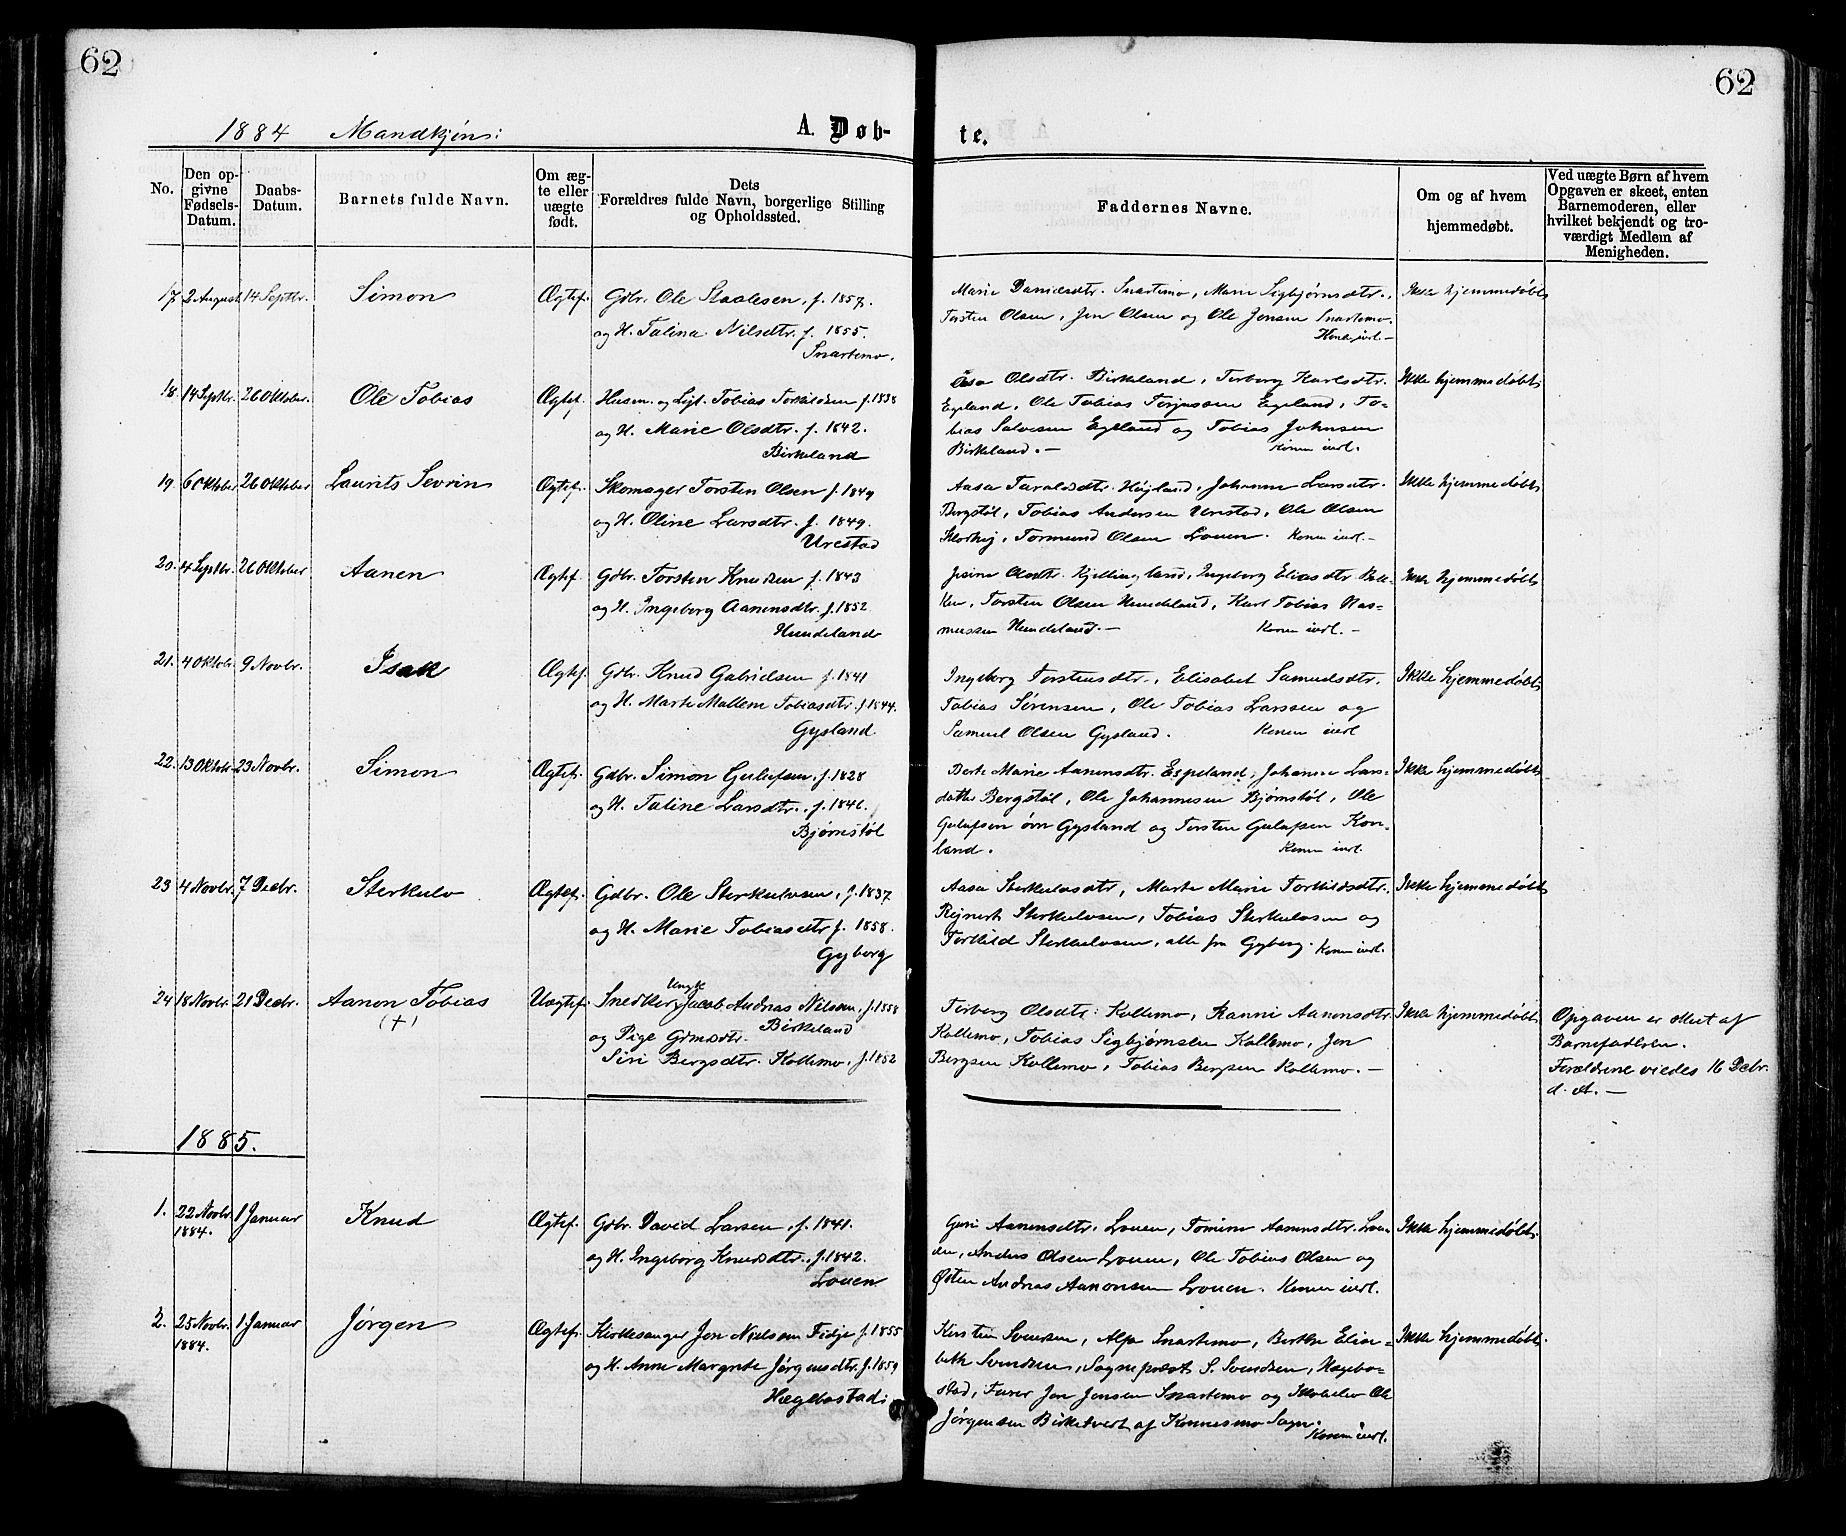 62
62
1884 Mandkjøn:
A. Døb-
te.
No.
Den op-
givne
Fødsels-
Datum.
Daabs-
Datum.
Barnets fulde Navn.
Om æg-
te eller
uægte
født.
Dets
Forældres fulde Navn, borgerlige Stilling
og Opholdssted.
Faddernes Navne.
Om og af hvem
hjemmedøbt.
Ved uægte Børn af hvem
Opgaven er skeet, enten
Barnemoderen, eller
hvilket bekjendt og tro-
værdigt Medlem af
Menigheden.
17. 2 August 14 Septbr. Simon Ægtef. Gdbr. Ole Staalesen, f. 1857.
og H. Talina Nilsdtr. f. 1855.
Snartemo.
Marie Danielsdtr. Snartemo, Marie Sigbjørnsdtr.,
Torsten Olsen, Jon Olsen og Ole Jensen Snartemo.
Konen indl.—
Ikke hjemmedøbt
18. 14 Septbr. 26 Oktober. Ole Tobias Ægtef. Husm. og Lgt. Tobias Torkildsen f. 1838
og H. Marie Olsdtr. f. 1842.
Birkeland
Aasa Olsdtr. Birkeland, Terberg Karlsdtr.
Egeland, Ole Tobias Torjussen Egeland, To-
bias Salvesen Egeland og Tobias Johnsen
Birkeland.— Konen indl.
Ikke hjemmedøbt
19. 6 Oktober 26 Oktober Laurits Sevrin Ægtef. Skomager Torsten Olsen f. 1849
og H. Oline Larsdtr. f. 1849.
Urestad
Aasa Taraldsdtr. Højland, Johanne Larsdtr.
Bergstøl, Tobias Andersen Urestad, Ole Olsen
Tormund Olsen Louen. Konen indl.—
Ikke hjemmedøbt
20. 4 Septbr. 26 Oktober Aanen Ægtef. Gdbr. Torsten Knudsen f. 1843
og H. Ingeborg Aanensdtr. f. 1852.
Hundeland
Jesine Olsdtr. Kjellingland, Ingeborg Eliasdtr. Bak-
ken, Torsten Olsen Hundeland, Karl Tobias Ras-
mussen Hundeland.— Konen indl.—
Ikke hjemmedøbt
21. 4 Oktobr. 9 Novbr. Isak Ægtef. Gdbr. Knud Gabrielsen f. 1841
og H. Marte Mallene Tobiasdtr. f. 1844.
Gysland
Ingeborg Torstensdtr., Elisabet Samuelsdtr.
Tobias Sørensen, Ole Tobias Larssen og
Samuel Olsen Gysland. Konen indl
Ikke hjemmedøbt
22. 13 Oktobr. 23 Novbr. Simon Ægtef. Gdbr. Simon Gulufsen, f. 1828
og H. Taline Larsdtr., f. 1846.
Bjørnstøl
Berte Marie Aanensdtr. Espeland, Johanne Lars-
datter Bergstøl, Ole Johannesen Bjørnstøl, Ole
Gulufsen øvr Gysland og Torsten Gulufsen Kon-
land. Konen indl.
Ikke hjemmedøbt
23 4 Novbr. 7 Decbr. Sterkulv Ægtef. Gdbr. Ole Sterkulvsen, f. 1837
og H. Marie Tobiasdtr f. 1858.
Gyberg
Aasa Sterkulvsdtr, Marte Marie Torkildsdtr.
Rejnert Sterkulvsen, Tobias Sterkulvsen og
Torkild Sterkulvsen, alle fra Gyberg. Konen indl.
Ikke hjemmedøbt
24 18 Novbr. 21 Decbr. Aanon Tobias
(+)
Uægtef. Snedker Ungk. Jacob Andreas Nilsen, f. 1858
Birkeland
og Pige Grmdsdtr.
Siri Bergsdtr. Kollemo, f. 1852
Terberg Olsdtr. Kollemo, Ranni Aanensdtr.
Kollemo, Tobias Sigbjørnsen Kollemo, Jon
Bergsen Kollemo, Tobias Bergsen Kollemo.—
Ikke hjemmedøbt
Opgaven er skeet af
Barnefaderen.
Forældrene viedes 16 Decbr.
d. A.—
1885.
1. 22 Novbr. 1884. 1 Januar Knud Ægtef. Gdbr. David Larsen, f. 1841.
og H. Ingeborg Knudsdtr., f. 1842.
Louen
Guri Aanensdtr. Louen, Tomine Aanensdtr. Lou-
en, Anders Olsen Louen, Ole Tobias Olsen og
Østen Andreas Aanonsen Louen. Konen indl.
Ikke hjemmedøbt.
2. 25 Novbr. 1884. 1 Januar Jørgen Ægtef. Kirkesanger Jon Nielsen Fidje f. 1855
og H. Anne Margrete Jørgensdtr. f. 1859
Hægebostad
Kirsten Svensen, Alfa Snartemo, Berthe Elisa-
beth Svendsen, Sognepræst S. Svendsen, Hægebo-
stad, Furer Jon Jensen Snartemo og Skolelær Ole
Jørgensen Birketvedt af Konnesmo Sogn.
Konen indl.
Ikke hjemmedøbt.